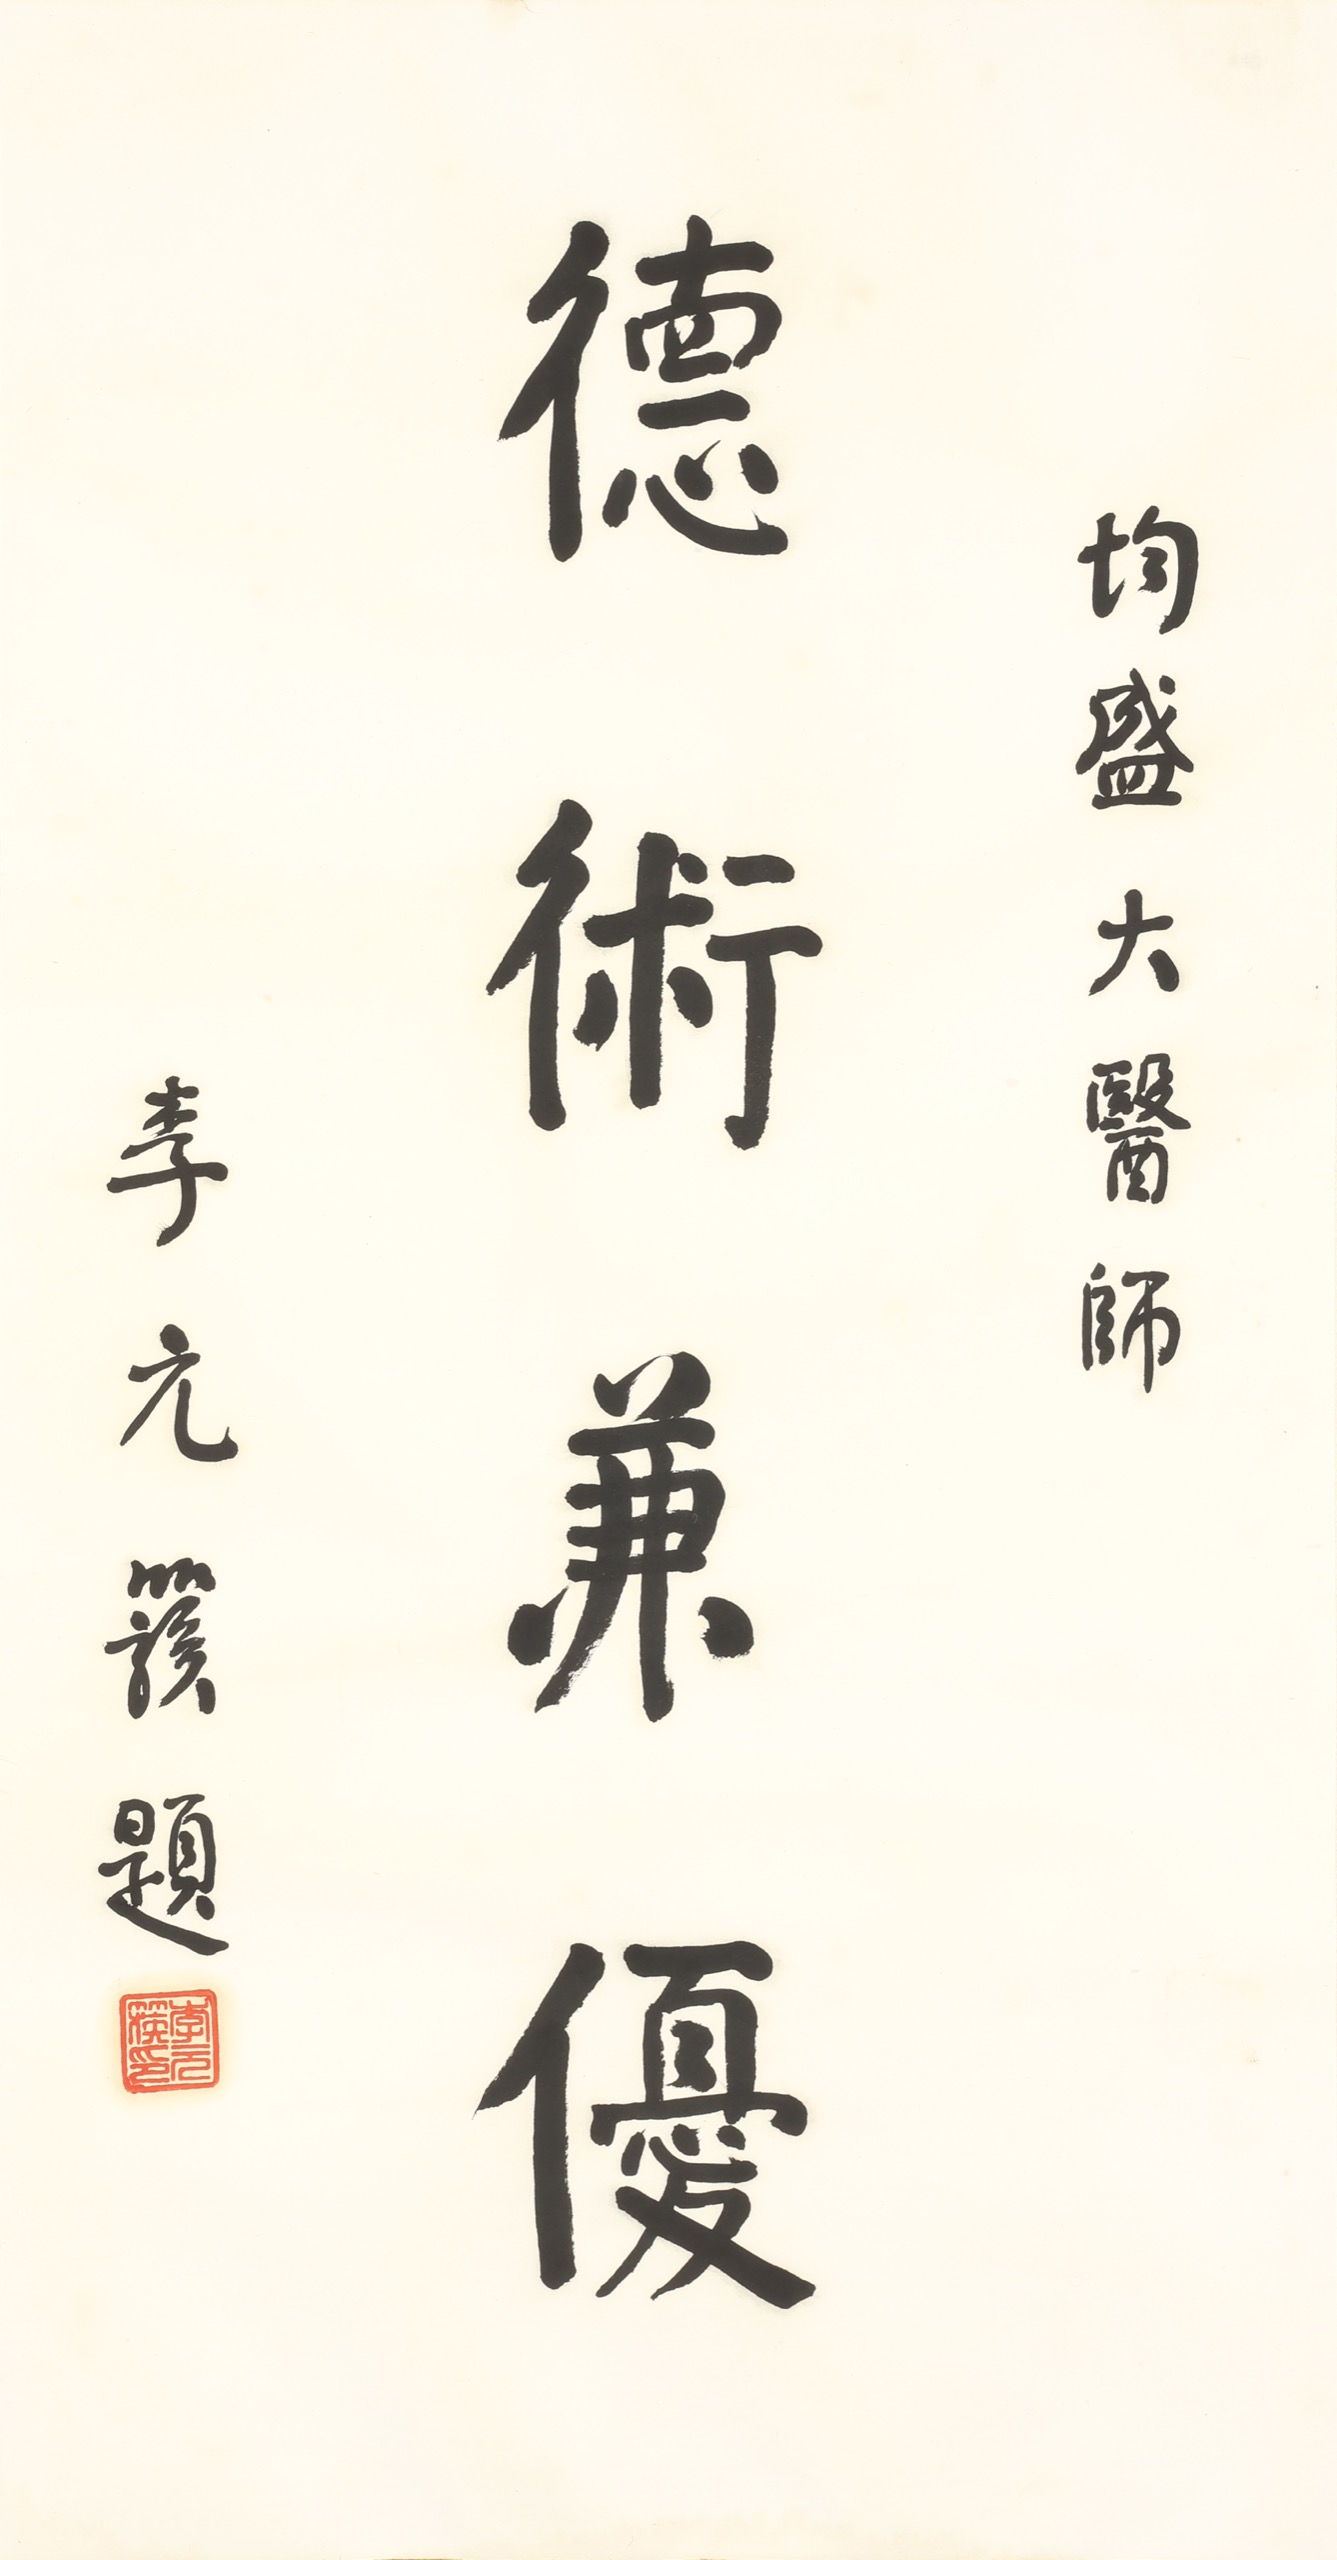 均盛大醫師
德術兼優
李元簇題
李元簇印